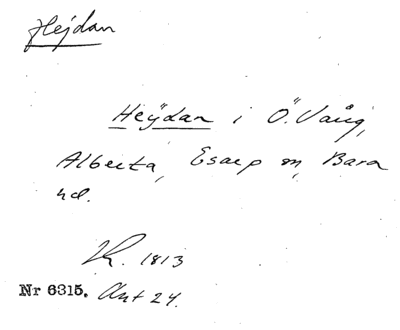 Hejdan
Heÿdan i Ö. Vång,
Alberta, Esarp sn, Bara
hd.
1813
Nr 6315. Akt 24.